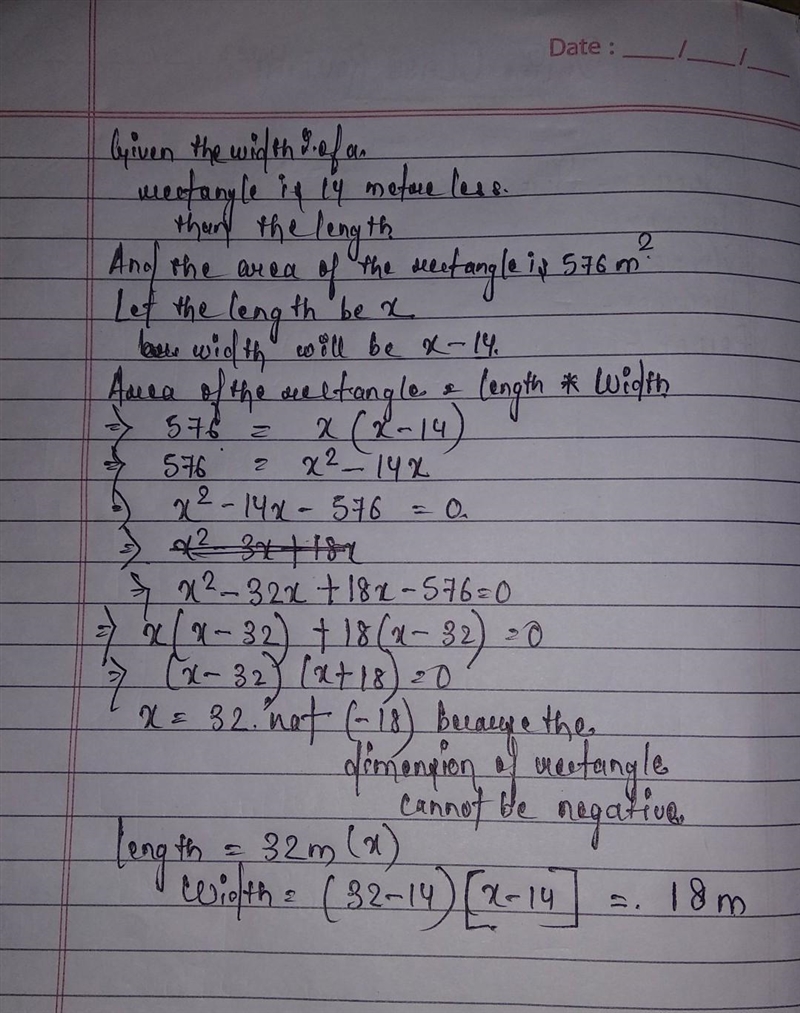 Date : ___/___/___
Given the width of a
rectangle is 14 metre less
than the length
And the area of the rectangle is 576 m²
Let the length be x
width will be x - 14.
Area of the rectangle = length * Width
⇒ 576 = x (x - 14)
⇒ 576 = x² - 14x
⇒ x² - 14x - 576 = 0
⇒ x² - 3x + 18x
⇒ x² - 32x + 18x - 576 = 0
⇒ x(x - 32) + 18(x - 32) = 0
⇒ (x - 32) (x + 18) = 0
x = 32. not (-18) Because the
dimension of rectangle
cannot be negative
length = 32m (x)
Width = (32 - 14) [x - 14] = 18 m